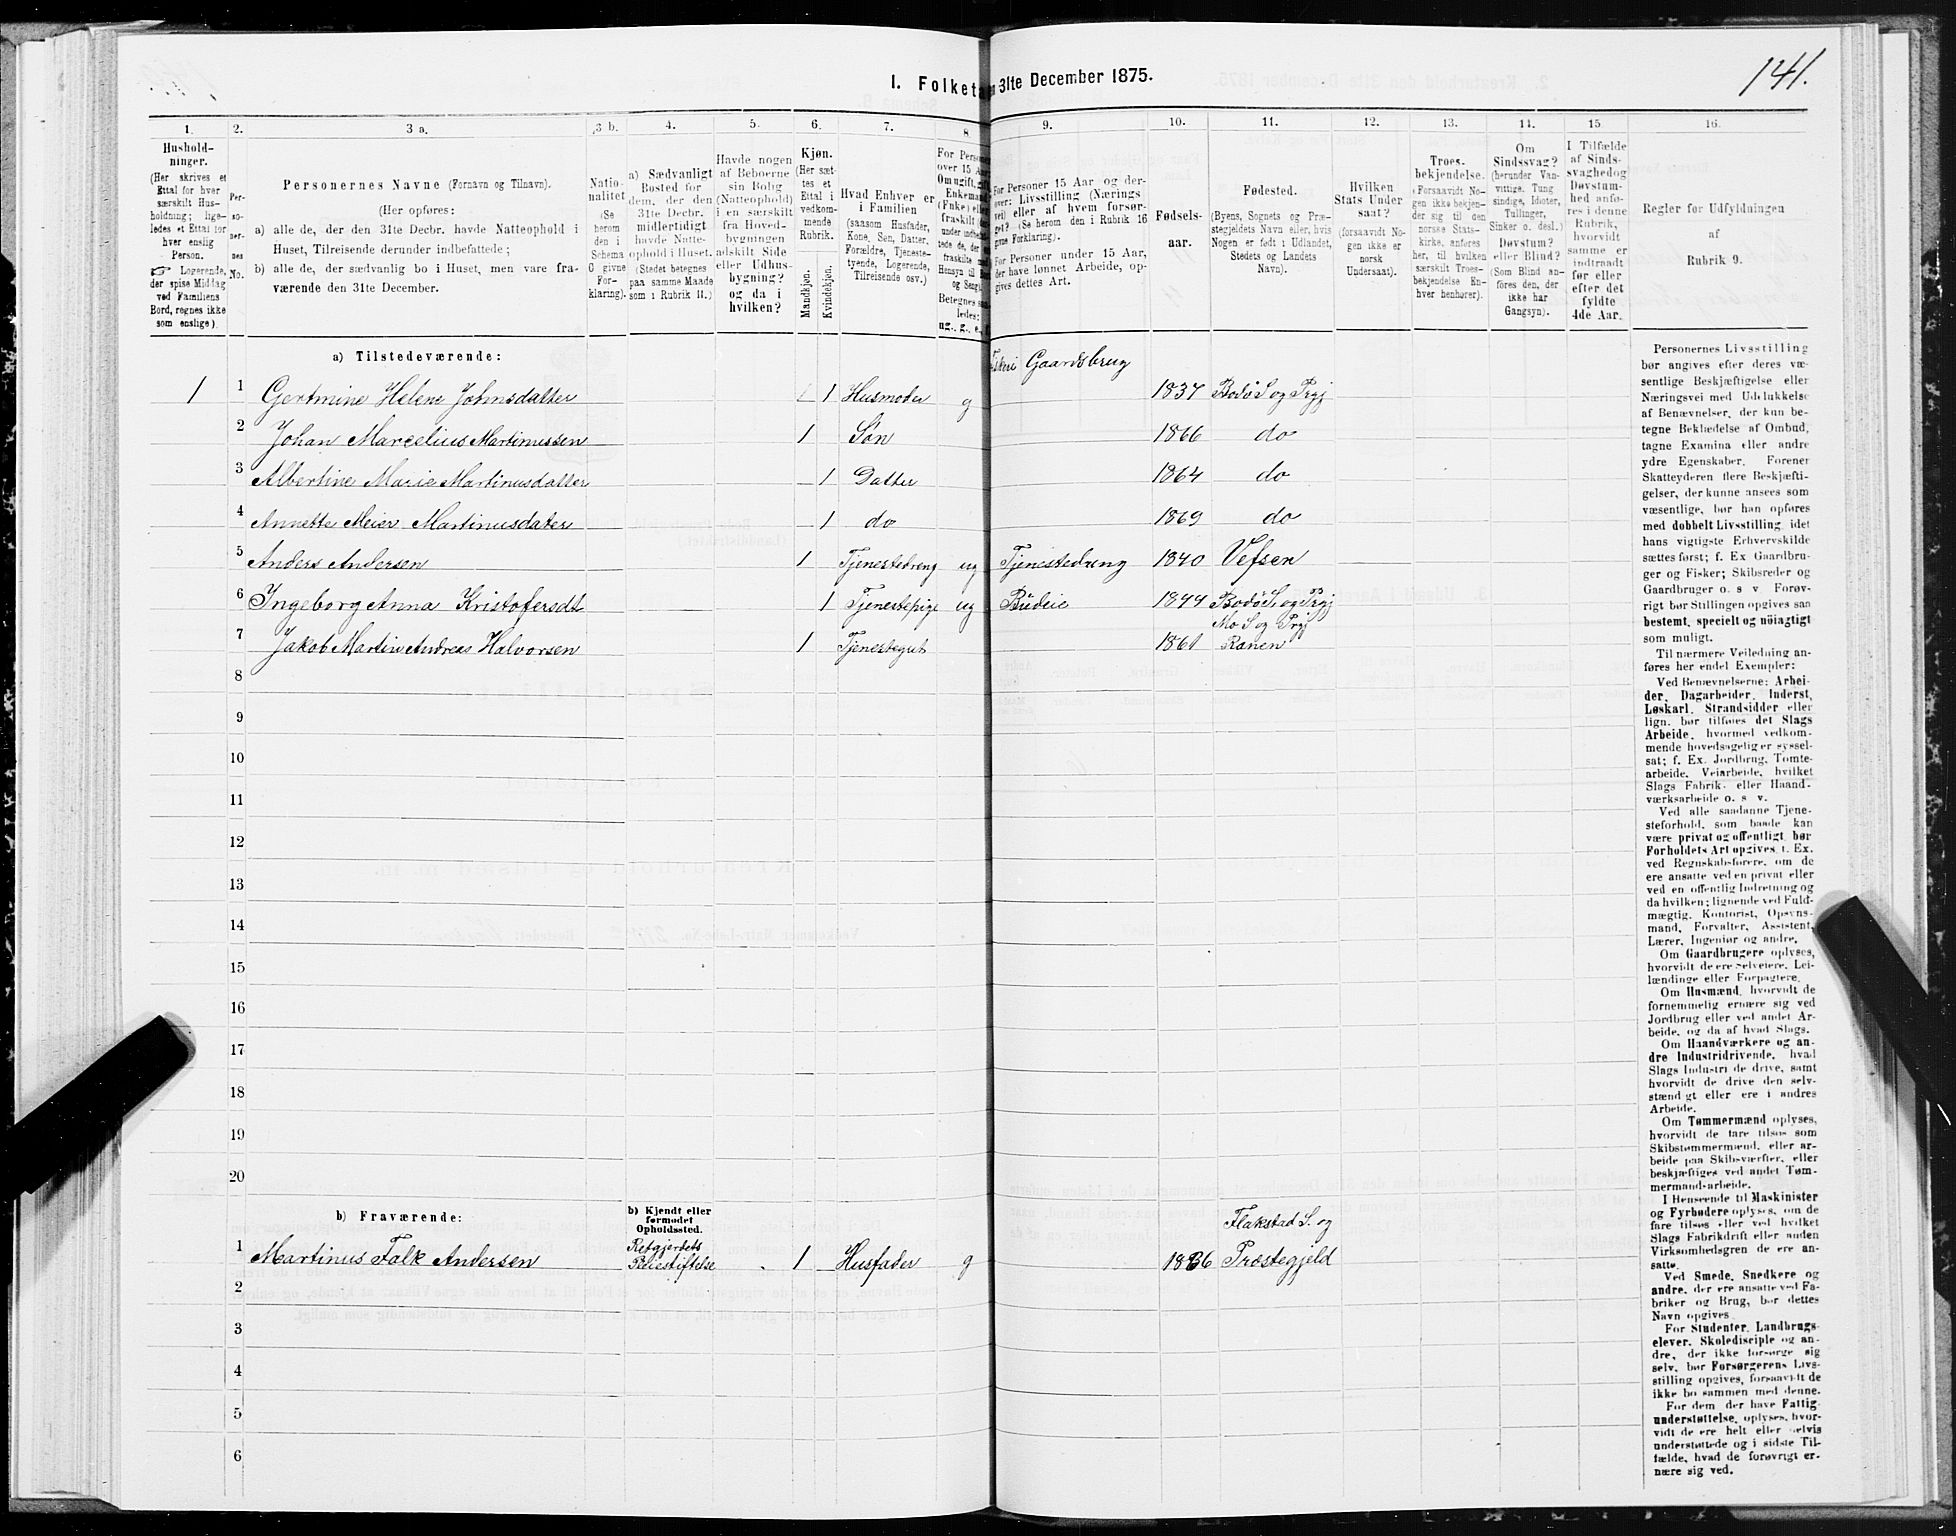 141.
I. Folketa n 31te December 1875.
1. 2. 3 a. 3 b. 4. 5. 6. 7. 8. 9. 10. 11. 12. 13. 14. 15. 16.
Hushold-
ninger.
(Her skrives et
Ettal for hver
særskilt Hus-
holdning; lige-
ledes et Ettal for
hver enslig
Person.
☞ Logerende,
der spise Middag
ved Familiens
Bord, regnes ikke
som enslige).
Per-
so-
ner-
nes
No.
Personernes Navne (Fornavn og Tilnavn).
(Her opføres:
a) alle de, der den 31te Decbr. havde Natteophold i
Huset, Tilreisende derunder indbefattede;
b) alle de, der sædvanlig bo i Huset, men vare fra-
værende den 31te December.
Natio-
nalitet
(Se
herom
den i
Schema
G givne
For-
klaring).
a) Sædvanligt
Bosted for
dem, der den
31te Decbr.
midlertidigt
havde Natte-
ophold i Huset.
(Stedet betegnes
paa samme Maade
som i Rubrik 11.)
Havde nogen
af Beboerne
sin Bolig
(Natteophold)
i en særskilt
fra Hoved-
bygningen
adskilt Side
eller Udhus-
bygning?
og da i
hvilken?
Kjøn.
(Her sæt-
tes et
Ettal i
vedkom-
mende
Rubrik.
Mandkjøn.
Kvindekjøn.
Hvad Enhver er
i Familien
(saasom Husfader,
Kone, Søn, Datter,
Forældre, Tjeneste-
tyende, Logerende,
Tilreisende osv.)
For Person
over 15 Aa
Om ugift, gift
Enkemand
(Fnke) elle
fraskilt
under indbe
tede de, der
fraskilte me
Hensyn til B
og Seng.
Betegnes saa
ledes:
ug., g., e., f.
For Personer 15 Aar og der-
over: Livsstilling (Nærings
vei) eller af hvem forsør-
get? (Se herom i Rubrik 16
givne Forklaring).
For Personer under 15 Aar,
der have lønnet Arbeide, op-
gives dettes Art.
Fødsels-
aar.
Fødested.
(Byens, Sognets og Præ-
stegjeldets Navn eller, hvis
Nogen er født i Udlandet,
Stedets og Landets
Navn).
Hvilken
Stats Under
saat?
(forsaavidt No-
gen ikke er
norsk
Undersaat).
Troes-
bekjendelse.
(Forsaavidt No-
gen ikke bekjen-
der sig til den
norske Stats-
kirke, anføres
her, til hvilken
særskilt Troes-
bekjendelse En-
hver henhører).
Om
Sindssvag?
(herunder Van-
vittige, Tung
sindige, Idioter,
Tullinger,
Sinker o. desl.)
Døvstum?
eller Blind?
(Som Blind an-
føres den, der
ikke har
Gangsyn).
I Tilfælde
af Sinds-
svaghedog
Døvstum-
hed anfø-
res i denne
Rubrik,
hvorvidt
samme er
indtraadt
før eller
efter det
fyldte
4de Aar.
Regler før Udfyldningen
af
Rubrik 9.
a) Tilstedeværende:
Fiskeri Gaardsbrug
1 1 Gertmine Helene Johnsdatter 1 Husmoder g 1837 Bodø S og Prgj
2 Johan Marcelius Martinussen 1 Søn 1866 do
3 Albertine Marie Martinusdatter 1 Datter 1864 do
4 Annette Meier Martinusdater 1 do 1869 do
5 Anders Andersen 1 Tjenestedreng ug Tjenestedreng 1840 Vefsen
6 Ingeborg Anna Kristofersdt 1 Tjenestepige ug Budeie 1844 Bodø S. og Prgj
Mo S og Prgj
7 Jakob Martin Andreas Halvorsen 1 Tjenestegut 1861 Ranen
8
9
10
11
12
13
14
15
16
17
18
19
20
b) Fraværende:
b) Kjendt eller
formodet
Opholdssted.
Flakstad S. og
1 Martinus Falk Andersen 1 Husfader g 1836 Præstegjeld
2
3
4
5
6
Personernes Livsstilling
bør angives efter deres væ-
sentlige Beskjæftigelse eller
Næringsvei med Udelukkelse
af Benævnelser, der kun be-
tegne Beklædelse af Ombud,
tagne Examina eller andre
ydre Egenskaber. Forener
Skatteyderen flere Beskjæfti-
gelser, der kunne ansees som
væsentlige, bør han opføres
med dobbelt Livsstilling, idet
hans vigtigste Erhvervskilde
sættes først; f. Ex Gaardbru-
ger og Fisker; Skibsreder og
Gaardbruger o. s v Forøv-
rigt bør Stillingen opgives saa
bestemt, specielt og nöiagtigt
som muligt.
Til nærmere Veiledning an-
føres her endel Exempler:
Ved Benævnelserne: Arbei-
der, Dagarbeider, Inderst,
Løskarl, Strandsidder eller
lign. bør tilføies det Slags
Arbeide, hvormed vedkom-
mende hovedsagelig er syssel-
sat; f. Ex. Jordbrug, Tomte-
arbeide, Veiarbeide, hvilket
Slags Fabrik- eller Haand-
værksarbeide o. s v.
Ved alle saadanne Tjene-
steforhold, som baade kan
være privat og offentligt, bør
Forholdets Art opgives, f. Ex.
ved Regnskabsførere, om de
ere ansatte ved en privat eller
ved en offentlig Indretning og
da hvilken; lignende ved Fuld-
mægtig, Kontorist, Opsyns-
mand, Forvalter, Assistent,
Lærer, Ingeniør og andre.
Om Gaardbrugere oplyses,
hvorvidt de ere Selveiere, Lei-
lændinge eller Forpagtere.
Om Husmænd, hvorvidt de
fornemmelig ernære sig ved
Jordbrug eller ved andet Ar-
beide, og da af hvad Slags.
Om Haandværkere og an-
dre Industridrivende, hvad
Slags Industri de drive, samt
hvorvidt de drive den selv-
stændigt eller ere i andres
Arbeide.
Om Tømmermænd oplyses,
hvorvidt de fare tilsøs som
Skibstømmermænd, eller ar-
beide paa Skibsværfter, eller
beskjæftiges ved andet Tøm-
mermand-arbeide.
I Henseende til Maskinister
og Fyrbødere oplyses, om de
fare tilsøs eller ved hvilket
Slags Fabrikdrift eller anden
Virksomhedsgren de ere an-
satte.
Ved Smede, Snedkere og
andre, der ere ansatte ved Fa-
briker og Brug, bør dettes
Navn opgives
For Studenter, Landbrugs-
elever, Skoledisciple og an-
dre, der ikke forsørge sig
selv, bør Forsørgerens Livs-
stilling opgives, forsaavidt de
ikke bo sammen med denne.
For dem, der have Fattig-
understøttelse, oplyses, hvor-
vidt de ere helt eller delvis
understøttede og i sidste Til-
fælde, hvad de forøvrigt er-
nære sig ved.